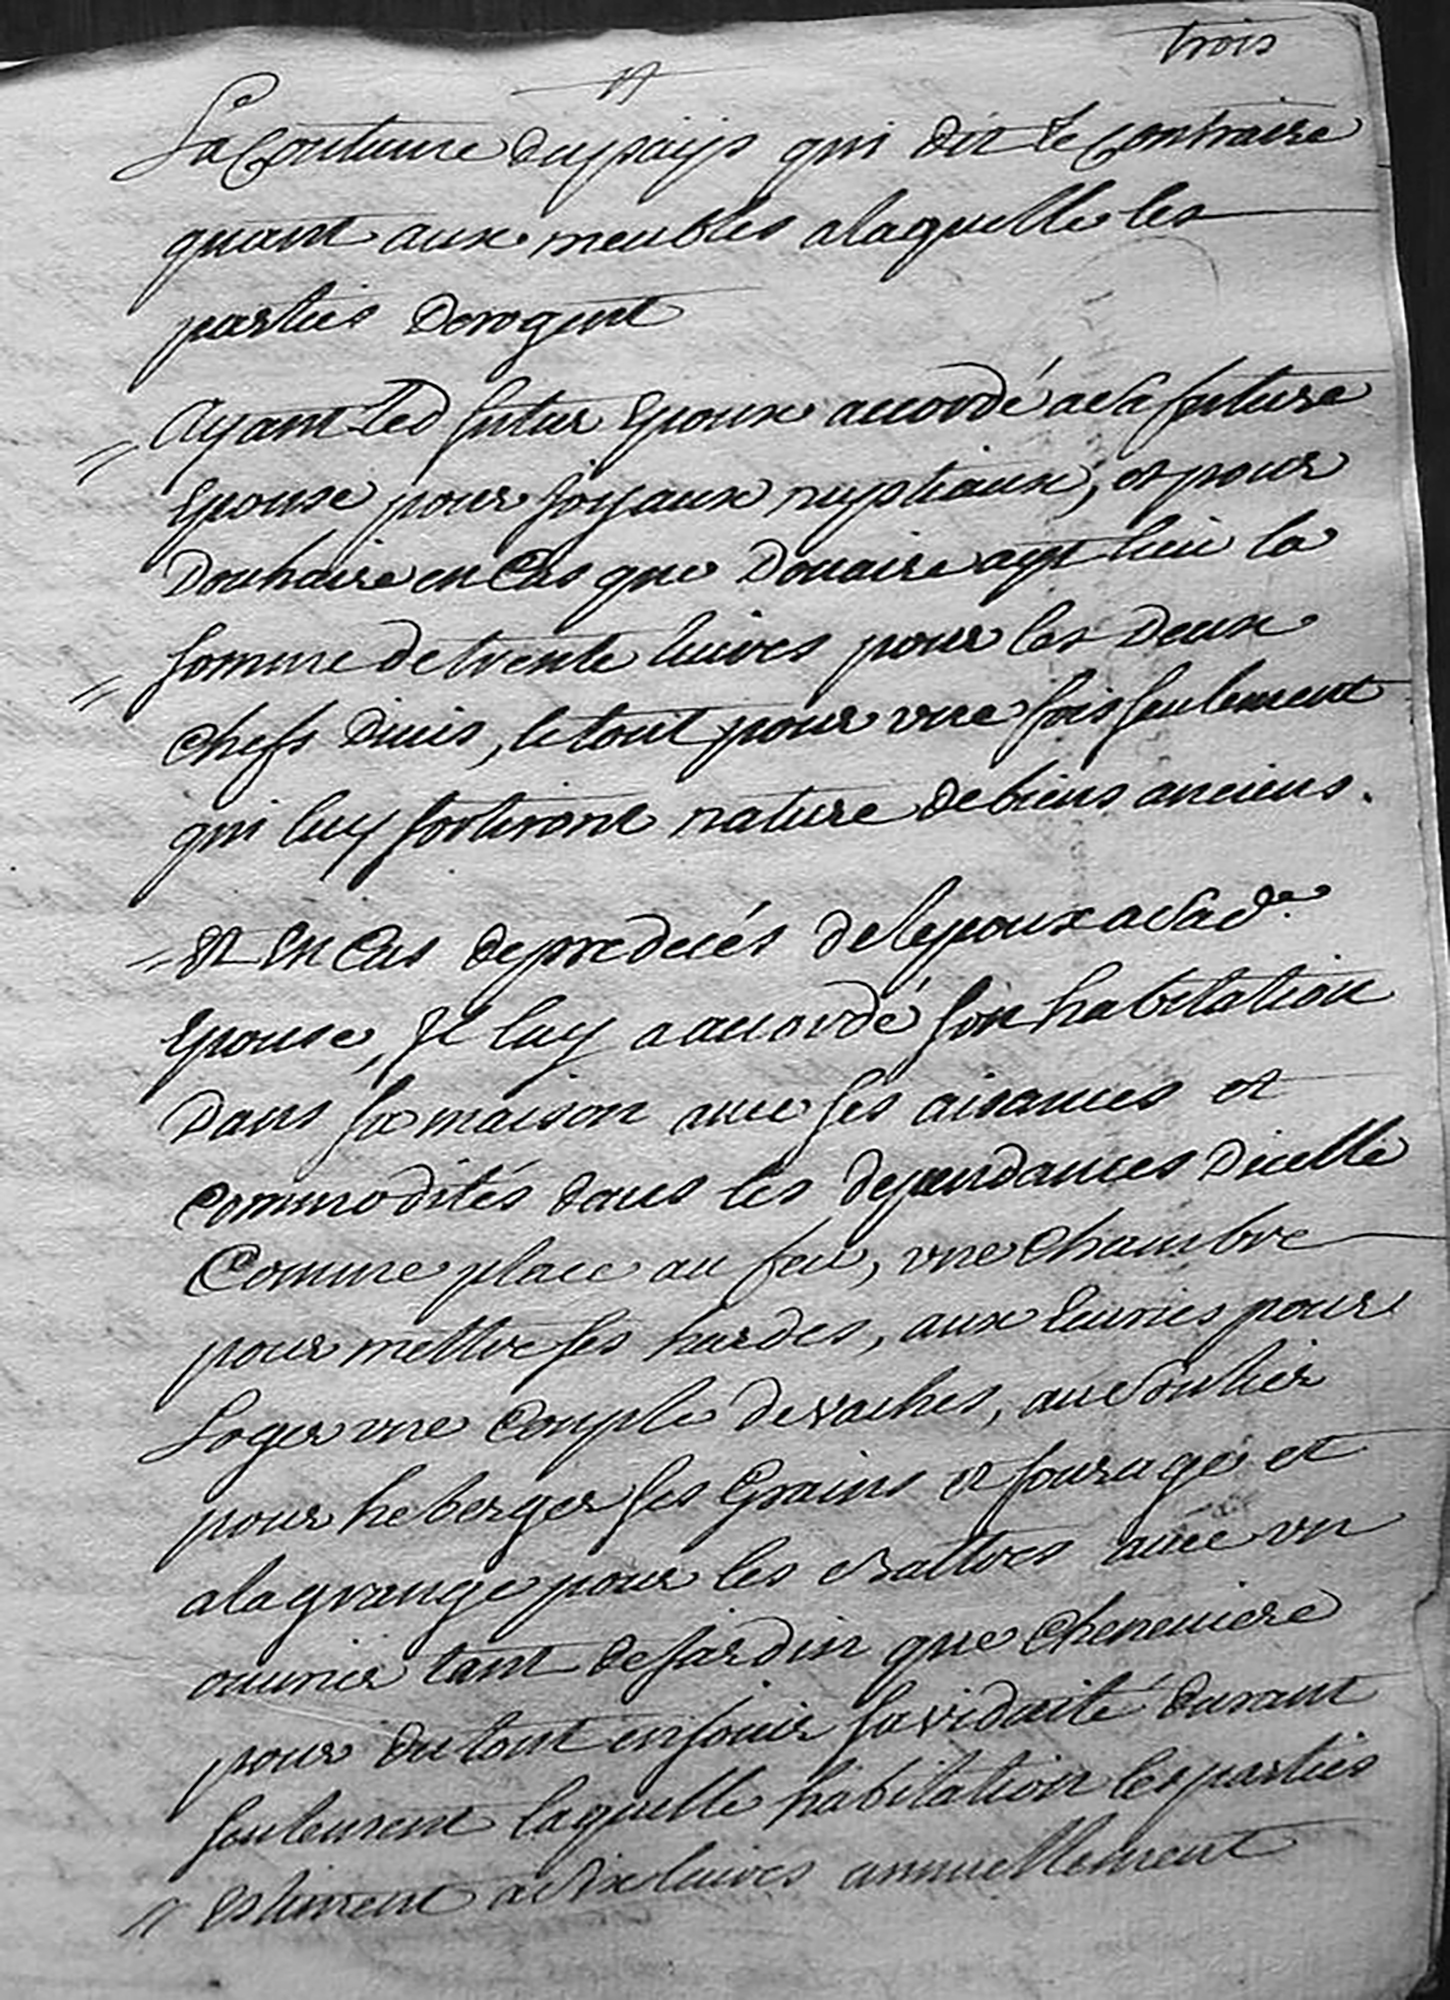 trois
La Coutume du pays qui dit le Contraire
quant aux meubles a laquelle les
parties derogent
Ayant led futur Epoux accordé a sa future
Epouse pour joyaux nuptiaux, et pour
Douhaire en Cas que Douaire ayt lieu la
somme de trente livres pour les deux
Chefs dicis, le tout pour une fois seulement
qui luy sortiront nature de biens anciens.
Et En Cas de predecés de lepoux a sad.e
Epouse, Il luy a accordé son habitation
dans sa maison avec ses aisances et
Commodités dans les dependances dicelle
Comme place au feu, une Chambre
pour mettre ses hardes, aux Ecuries pour
Loger une Couple de vaches, au Soulier
pour heberger ses Grains et fourage et
a la grange pour les Battres avec un
ouvrier tant de Jardin que Cheneviere
pour du tout en jouir sa viduité durant
seulement laquelle habitation les parties
Estiment a dix livres annuellement